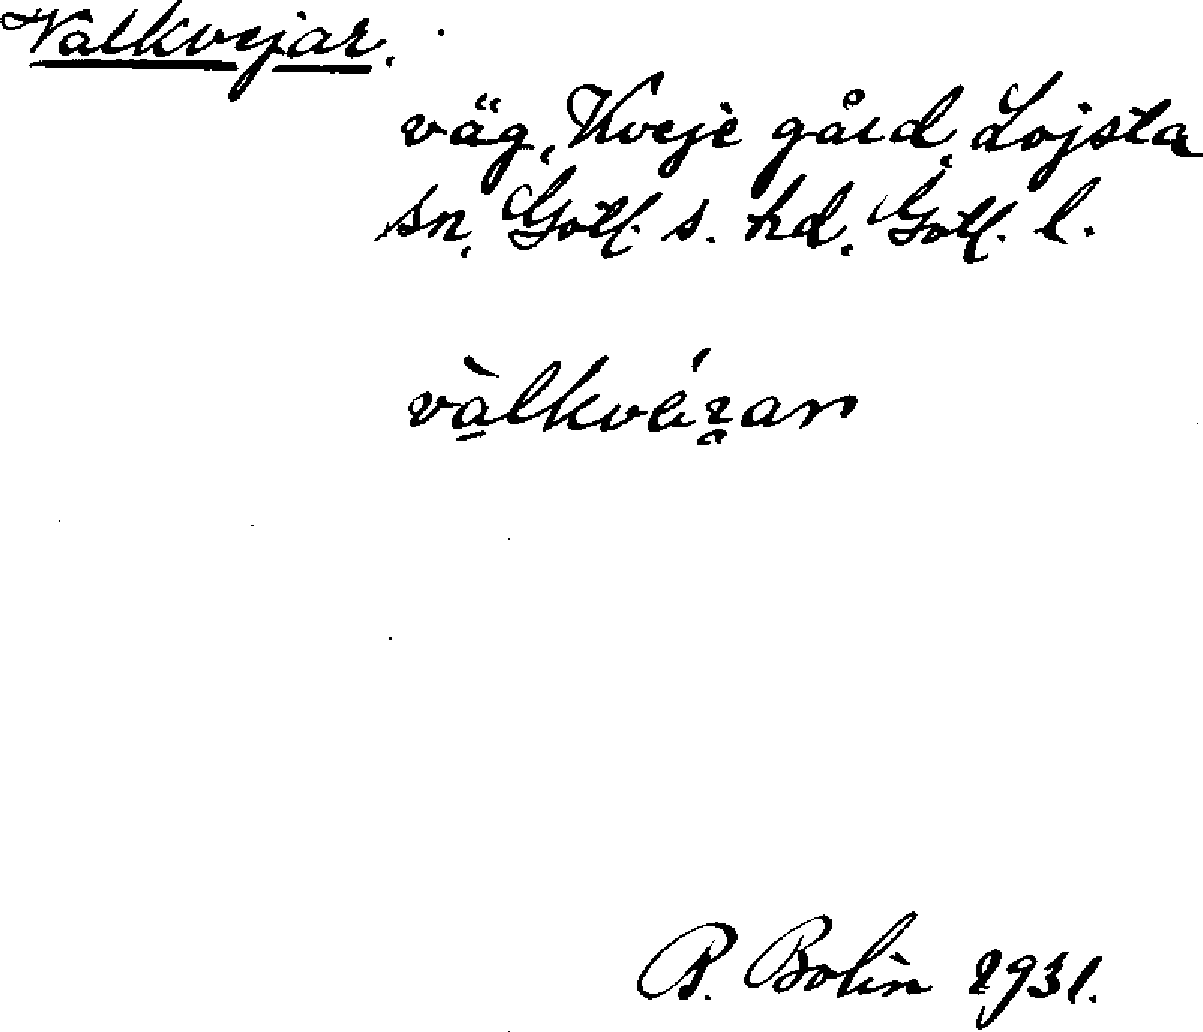 Valkvejar.
väg, Kveje gård, Lojsta
sn, Gotl. s. hd, Gotl. l.
vàlkvéʒar
B. Bolin 1931.